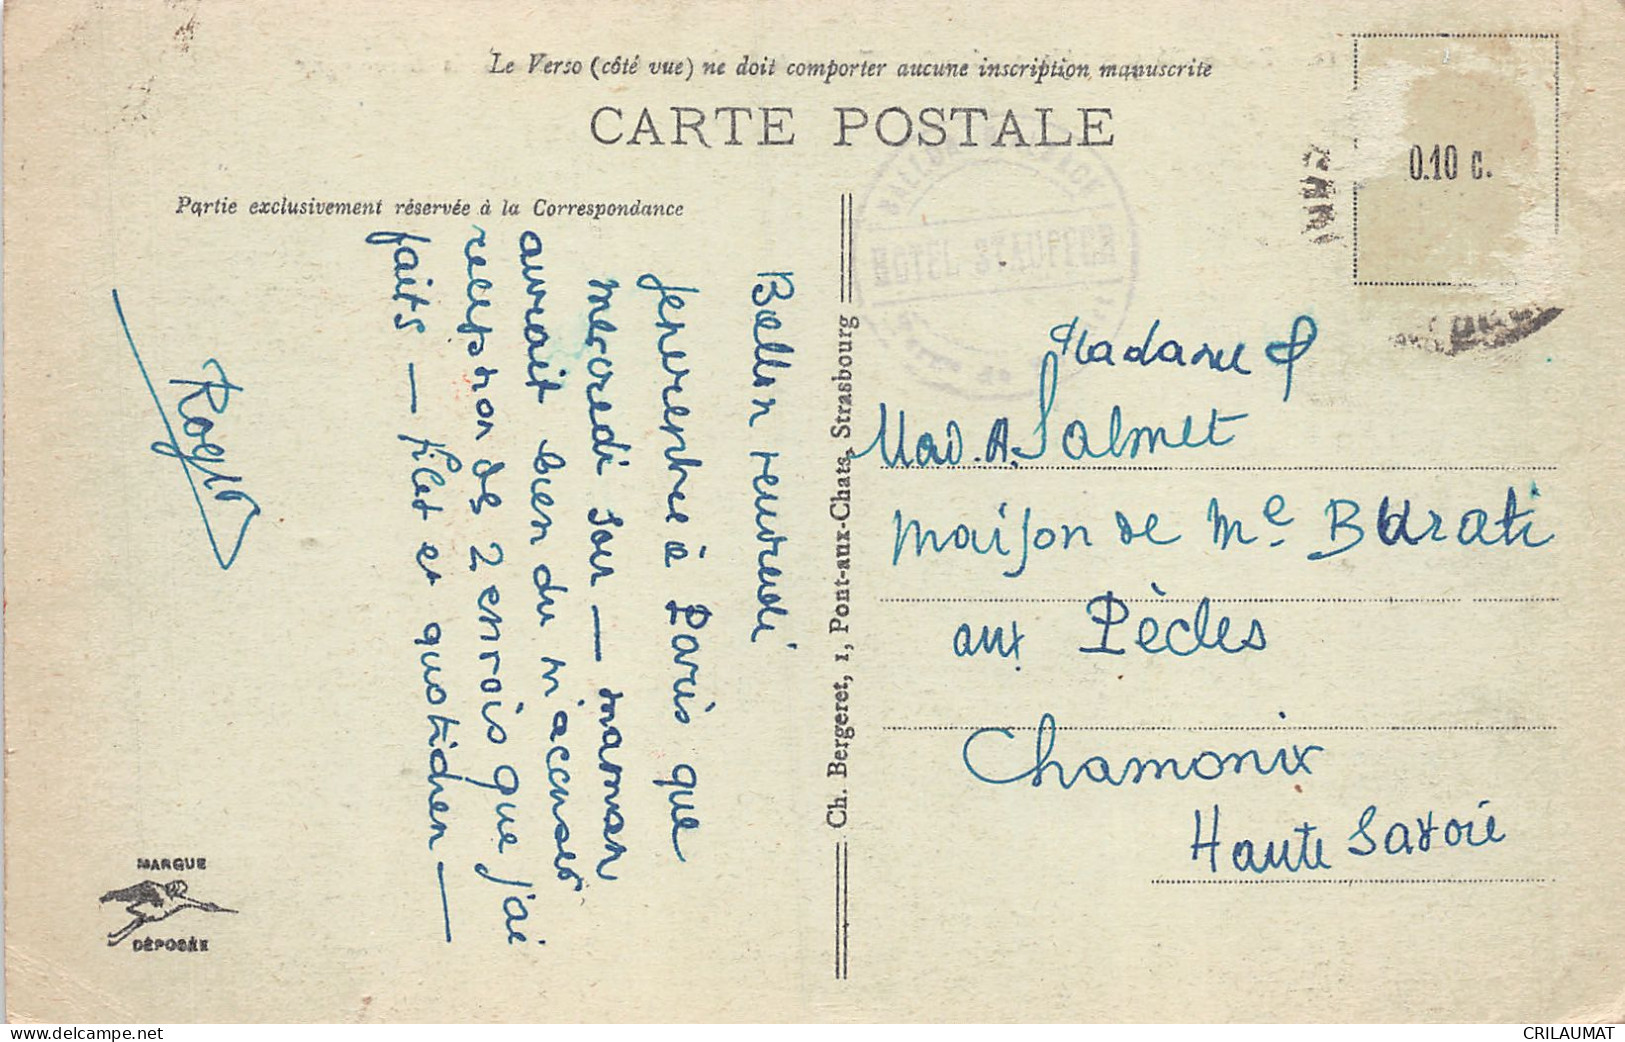 Le Verso (côté vue) ne doit comporter aucune inscription manuscrite
CARTE POSTALE
Partie exclusivement réservée à la Correspondance
0.10 c.
HOTEL STAUFFER
Ballon vendredi
Je rentre à Paris que
mercredi soir — maman
aurait bien du m'accuser
reception de 2 envois que j'ai
faits — Filet et quotidien —
Roger
Ch. Bergeret, 1, Pont-aux-Chats, Strasbourg
Madame
Mad. A. Salmet
maison de Me Burati
aux Pècles
Chamonix
Haute Savoie
MARQUE
DÉPOSÉE
www.delcampe.net
CRILAUMAT